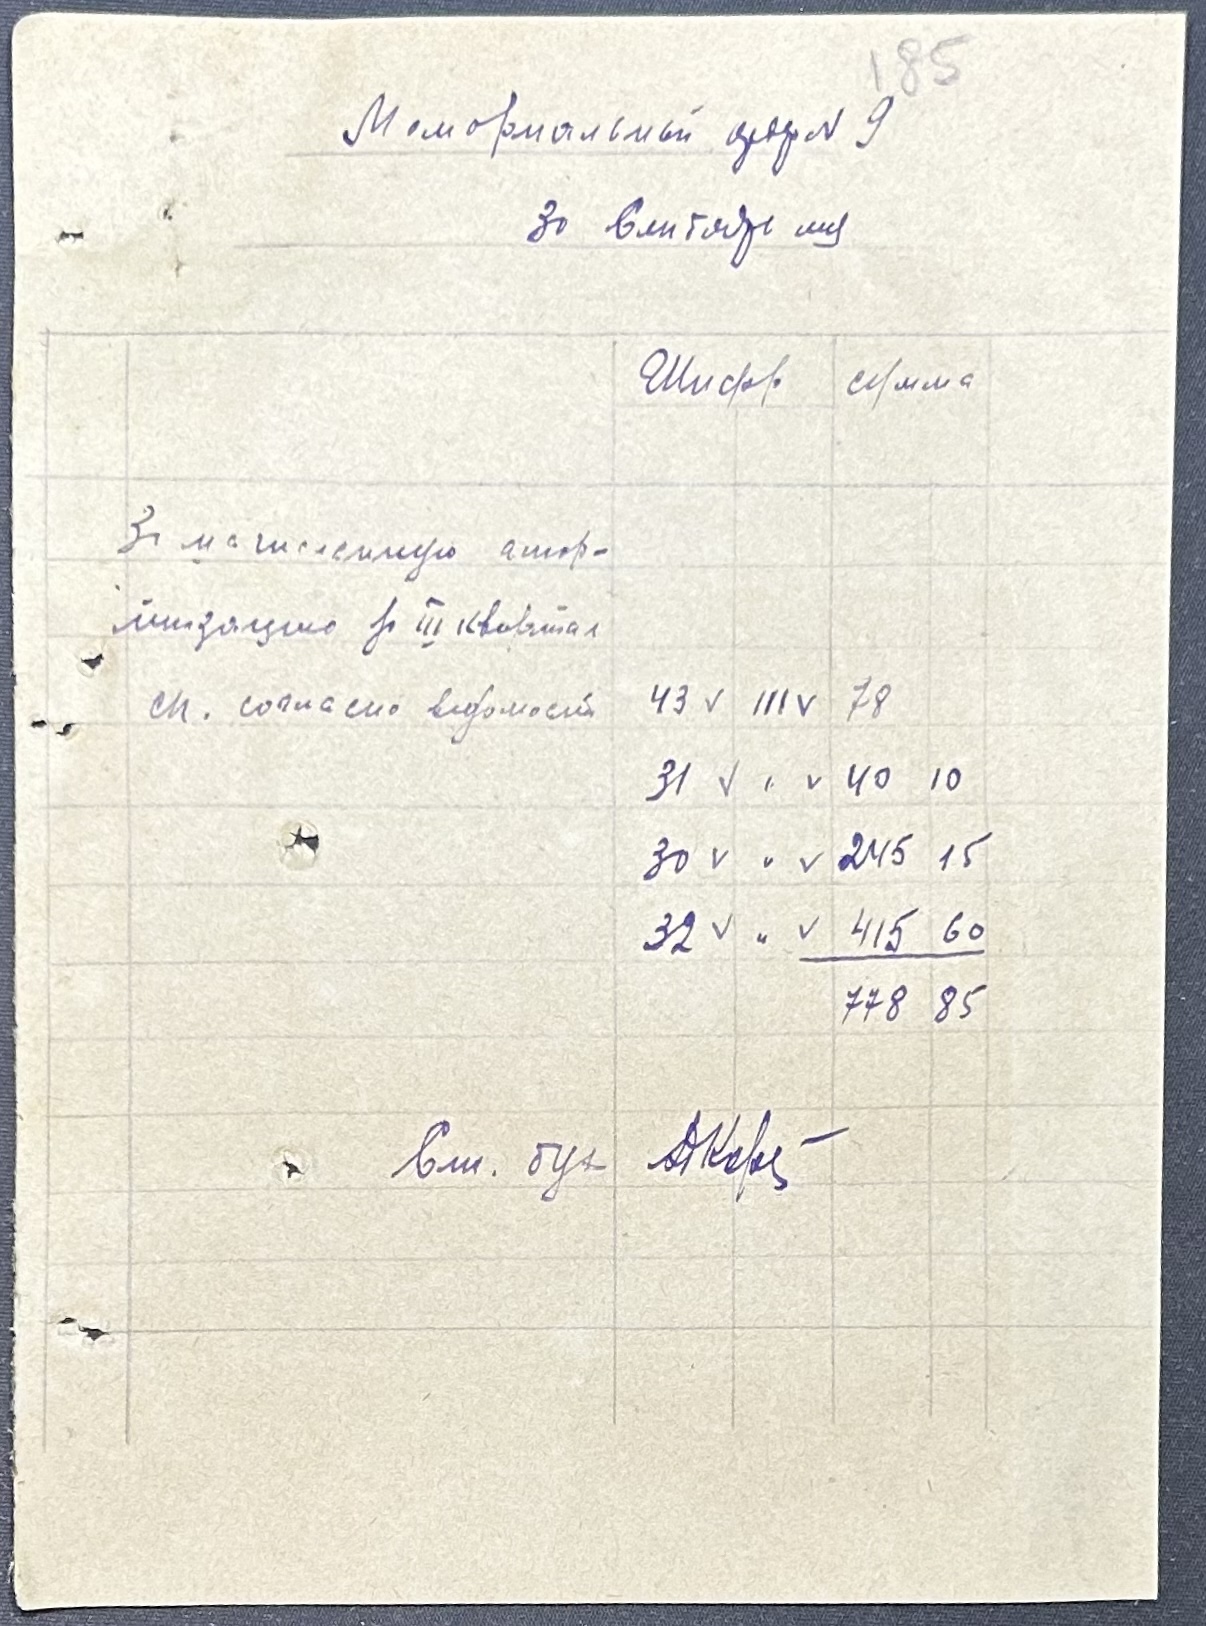 185
Мемориальный ордер № 9
За Сентябрь м-ц
Шифр сумма
За начисленную амор-
тизацию за III квартал
см. согласно ведомости 43 √ 111 √ 78
31 √ " √ 40 10
30 √ " √ 245 15
32 √ " √ 415 60
778 85
Ст. бух